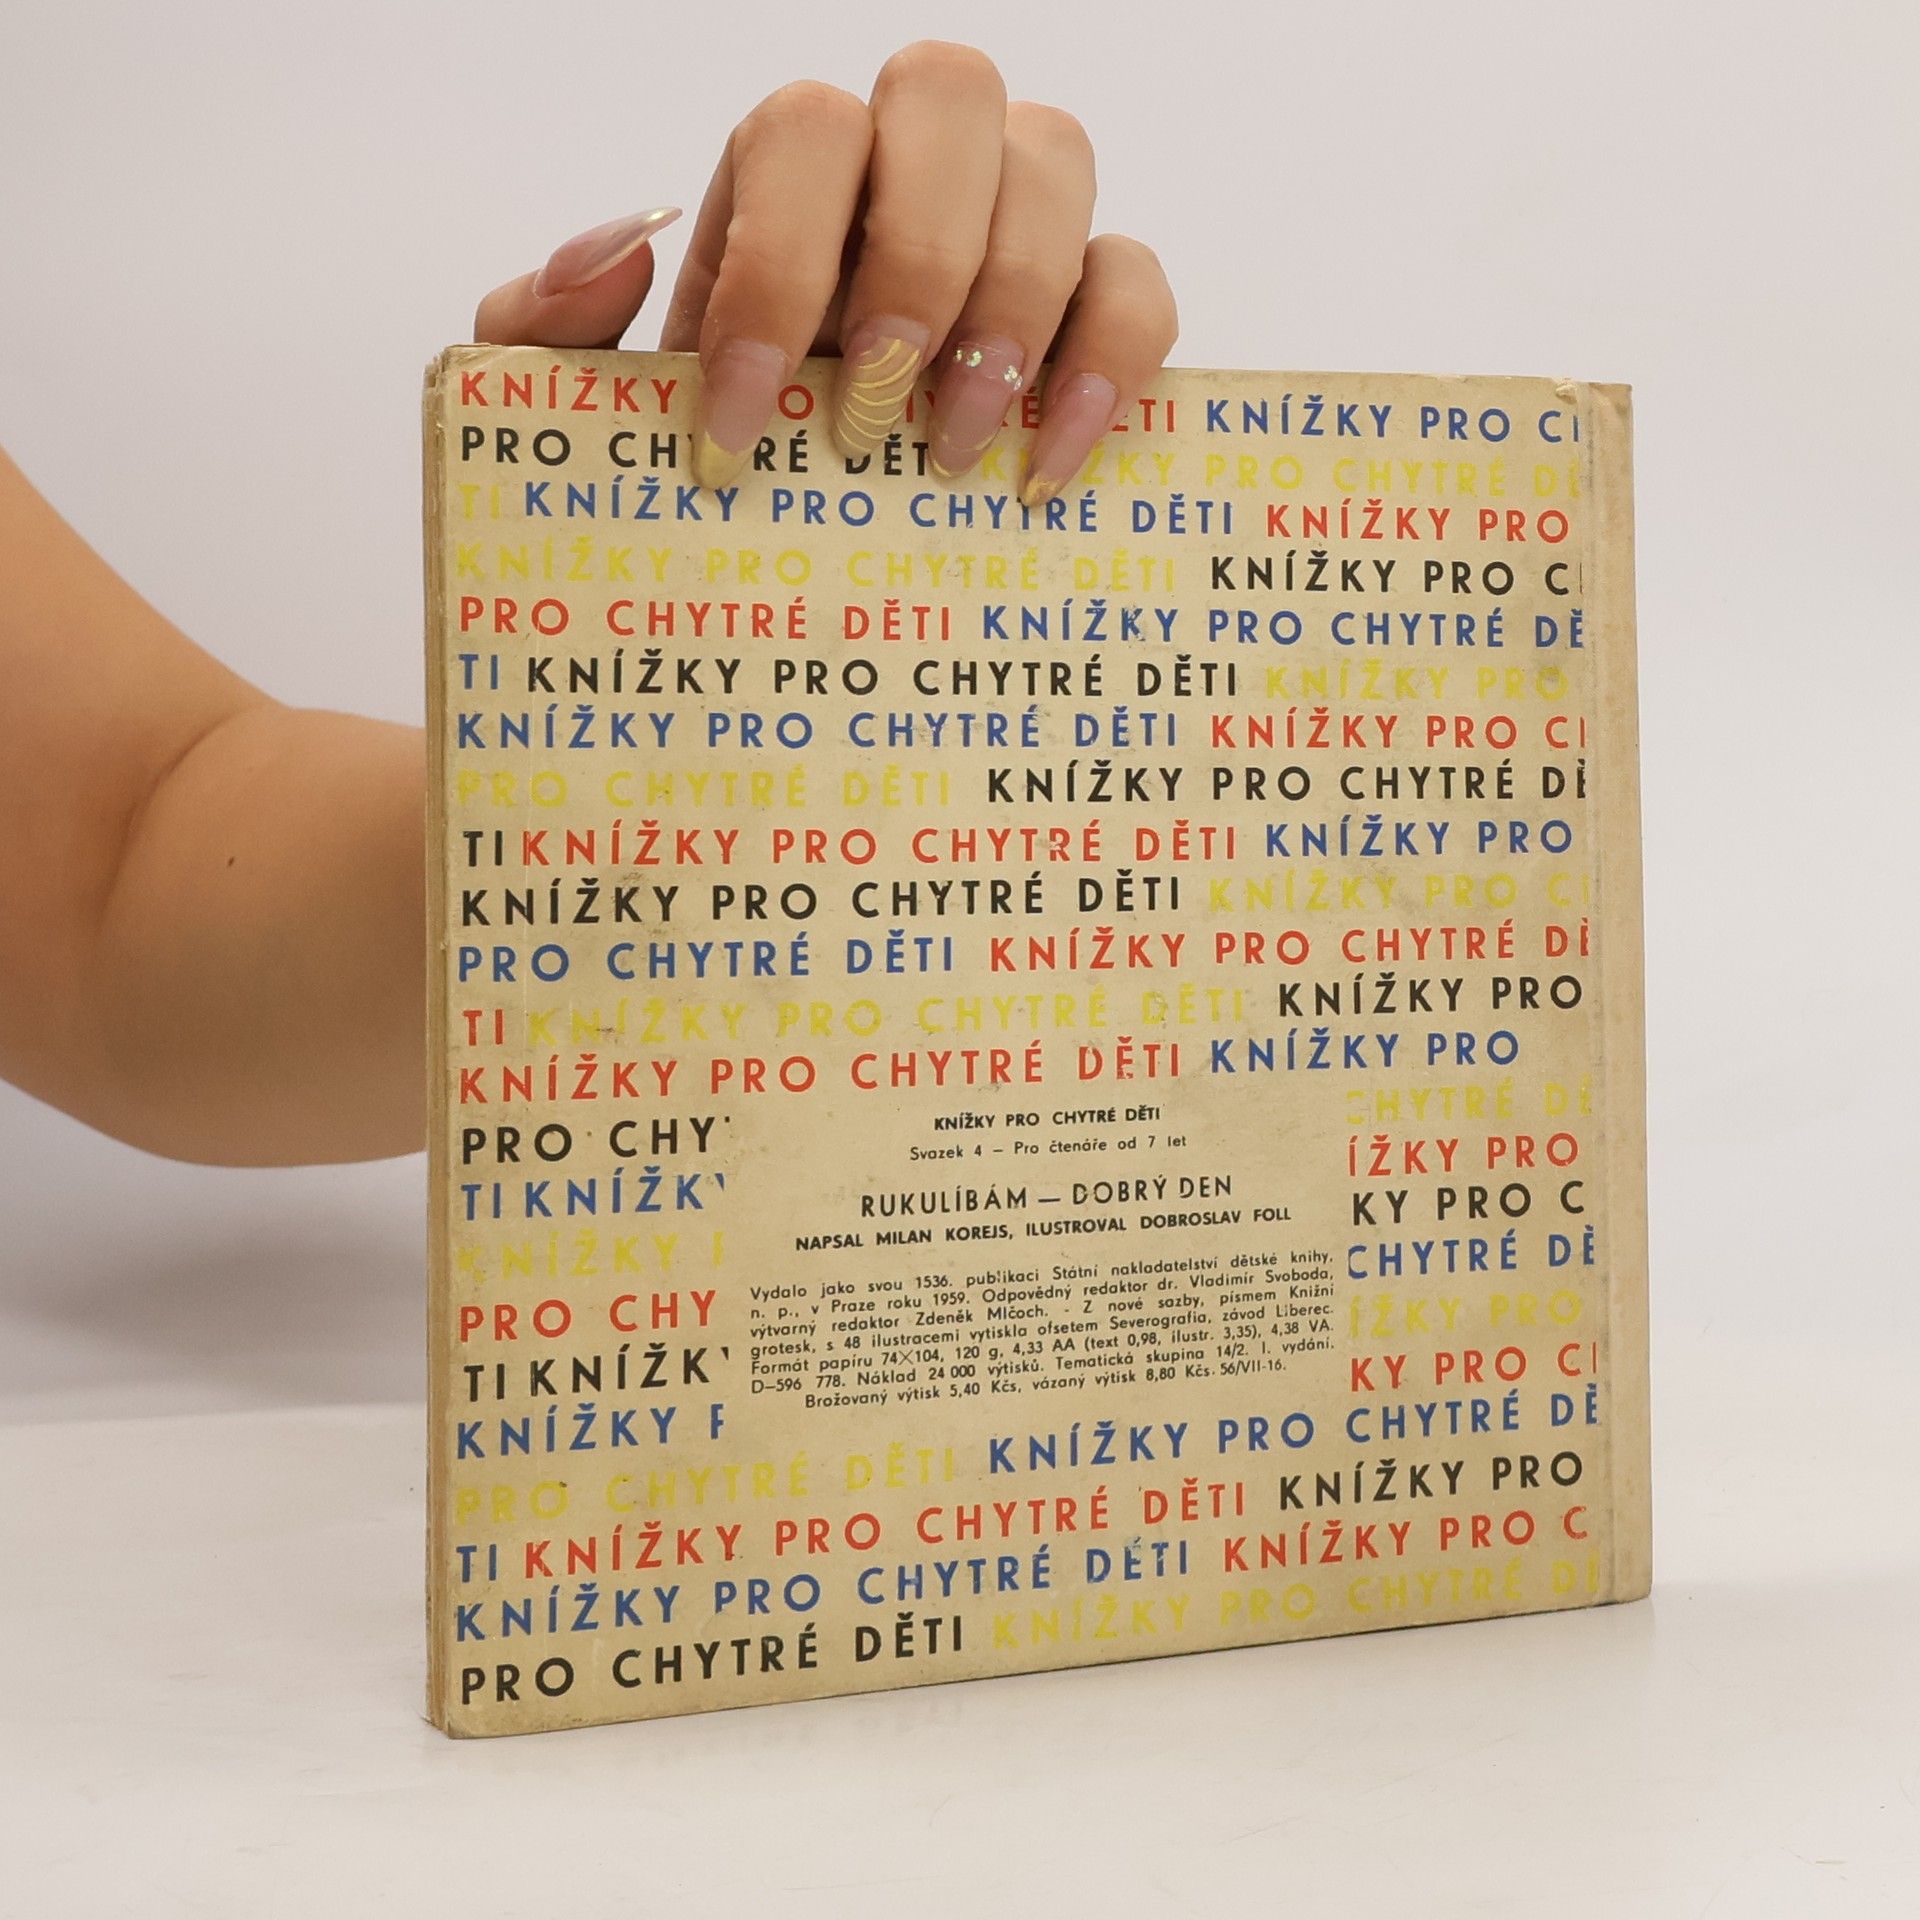 KNÍŽKY ETI KNÍŽKY PRO
PRO DĚT KNÍŽKY PRO CHYTRÉ DĚ
TI KNÍŽKY PRO CHYTRÉ DĚTI KNÍŽKY PRO
KNÍŽKY PRO CHYTRÉ DĚTI KNÍŽKY PRO C
PRO CHYTRÉ DĚTI KNÍŽKY PRO CHYTRÉ DĚ
TI KNÍŽKY PRO CHYTRÉ DĚTI KNÍŽKY PRO
KNÍŽKY PRO CHYTRÉ DĚTI KNÍŽKY PRO C
PRO CHYTRÉ DĚTI KNÍŽKY PRO CHYTRÉ DĚ
TI KNÍŽKY PRO CHYTRÉ DĚTI KNÍŽKY PRO
KNÍŽKY PRO CHYTRÉ DĚTI KNÍŽKY PRO C
PRO CHYTRÉ DĚTI KNÍŽKY PRO CHYTRÉ DĚ
TI KNÍŽKY PRO CHYTRÉ DĚTI KNÍŽKY PRO
KNÍŽKY PRO CHYTRÉ DĚTI KNÍŽKY PRO
PRO CHY CHYTRÉ DĚ
TI KNÍŽK ÍŽKY PRO
KNÍŽKY KY PRO C
PRO CHY CHYTRÉ DĚ
TI KNÍŽK ÍŽKY PRO
KNÍŽKY P KY PRO C
KNÍŽKY PRO CHYTRÉ DĚTI
Svazek 4 – Pro čtenáře od 7 let
RUKULÍBÁM — DOBRÝ DEN
NAPSAL MILAN KOREJS, ILUSTROVAL DOBROSLAV FOLL
Vydalo jako svou 1536. publikaci Státní nakladatelství dětské knihy,
n. p., v Praze roku 1959. Odpovědný redaktor dr. Vladimír Svoboda,
výtvarný redaktor Zdeněk Mlčoch. - Z nové sazby, písmem Knižní
grotesk, s 48 ilustracemi vytiskla ofsetem Severografia, závod Liberec.
Formát papíru 74×104, 120 g, 4,33 AA (text 0,98, ilustr. 3,35), 4,38 VA.
D–596 778. Náklad 24 000 výtisků. Tematická skupina 14/2. I. vydání.
Brožovaný výtisk 5,40 Kčs, vázaný výtisk 8,80 Kčs. 56/VII-16.
PRO CHYTRÉ DĚTI KNÍŽKY PRO CHYTRÉ DĚ
TI KNÍŽKY PRO CHYTRÉ DĚTI KNÍŽKY PRO
KNÍŽKY PRO CHYTRÉ DĚTI KNÍŽKY PRO C
PRO CHYTRÉ DĚTI KNÍŽKY PRO CHYTRÉ DĚ